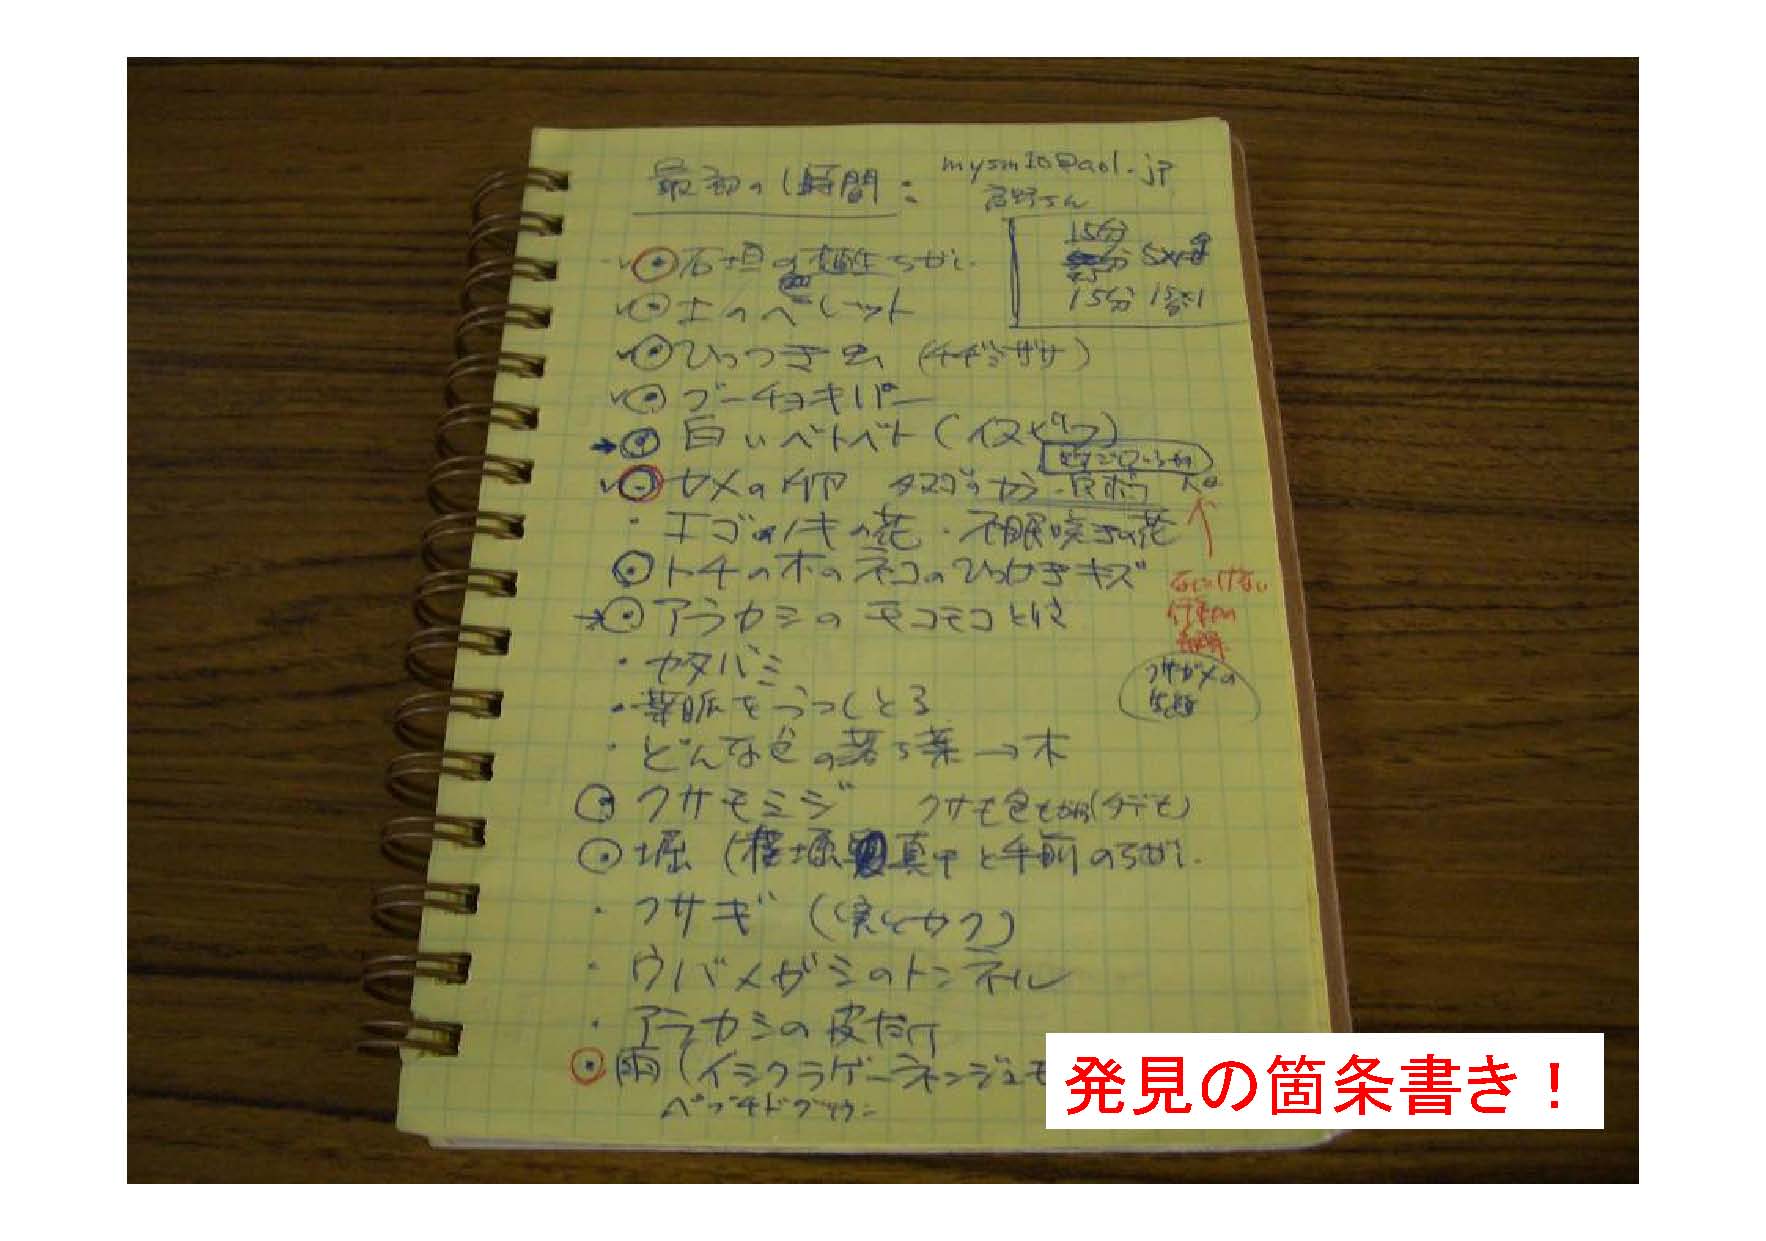 最初の1時間：
mysm10@aol.jp
石垣の植生ちがい
土のペレット
ひっつき虫（チヂミザサ）
グーチョキパー
白いベトベト（イヌビワ）
カメの卵 タマゴのカラ
エゴノキの花・不眠咲きの花
トチの木のネコのひっかきキズ
アラカシのモコモコ
カタバミ
葉脈をうつしとる
どんな色の落ち葉→木
クサモミジ
堀（
真中と手前のちがい
クサギ（実とガク）
ウバメガシのトンネル
アラカシの皮だけ
雨（イシクラゲーネンジュモ
15分
15分
クサガメの
発見の箇条書き！